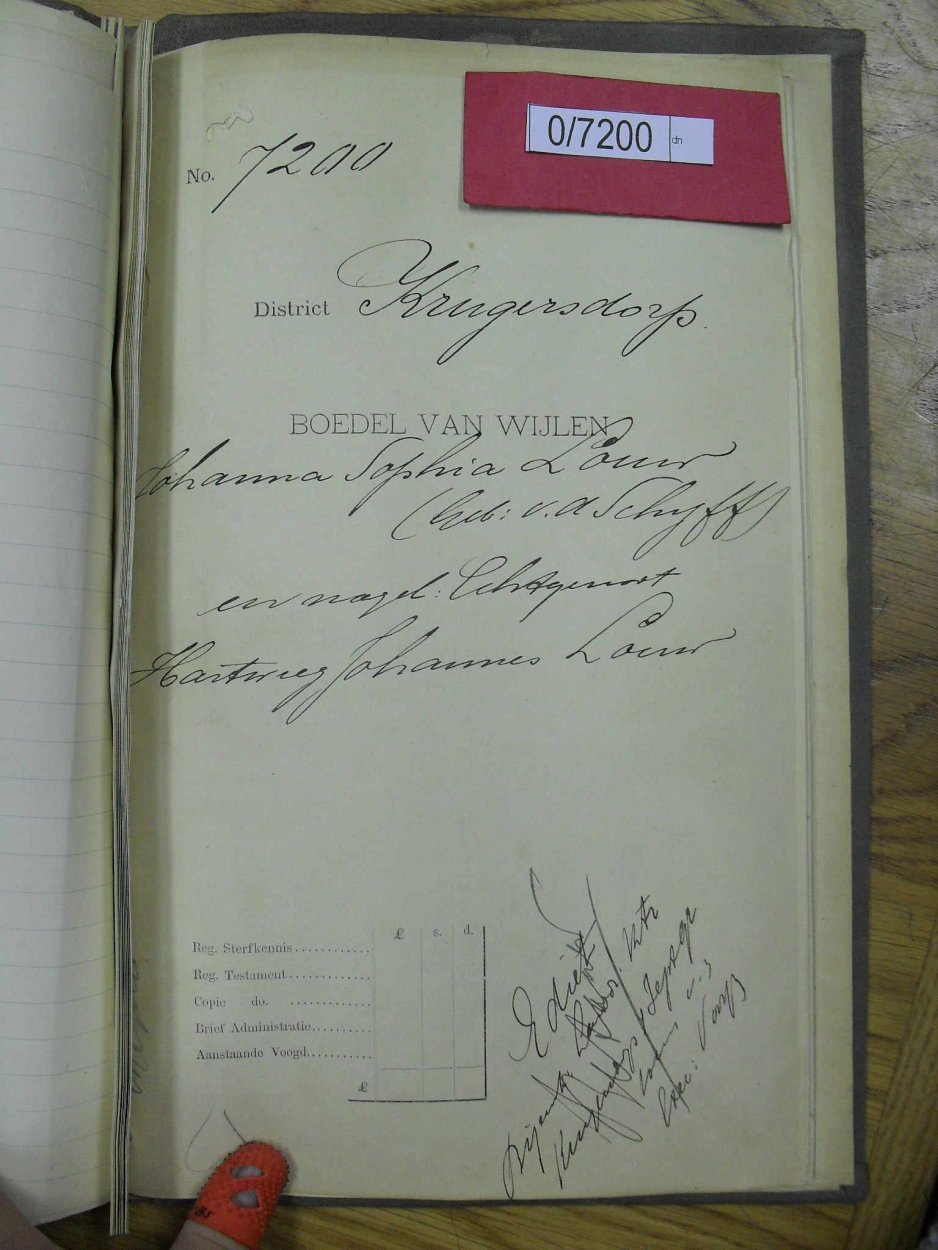 0/7200 dn
No. 7200
District Krugersdorp.
BOEDEL VAN WIJLEN
Johanna Sophia Louw
(Geb: v. d Schyff)
en nagel: Echtgenoot
Hartwieg Johannes Louw
£ s. d.
Reg. Sterfkennis............
Reg. Testament.............
Copie do. .............
Brief Administratie.........
Aanstaande Voogd..........
£
Edict